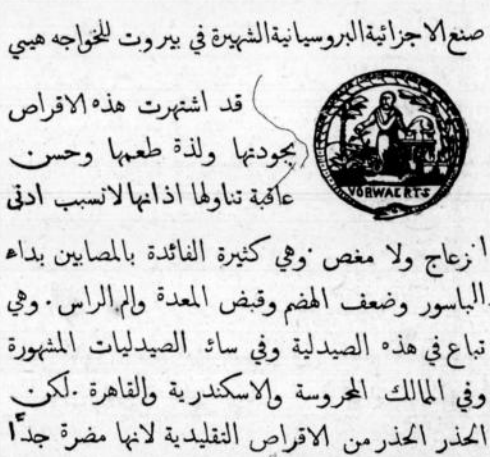 صنع الاجزائية البروسيانية الشهيرة في بيروت للخواجه هيسي
قد اشتهرت هذه الاقراص
بجودتها ولذة طعمها وحسن
عاقبة تناولها اذ انها لا تسبب ادنى
VORWAERTS
انزعاج ولا مغص . وهي كثيرة الفائدة بالمصابين بداء
الباسور وضعف الهضم وقبض المعدة والم الراس . وهي
تباع في هذه الصيدلية وفي سائر الصيدليات المشهورة
وفي الممالك المحروسة والاسكندرية والقاهرة . لكن
الحذر الحذر من الاقراص التقليدية لانها مضرة جدًّا